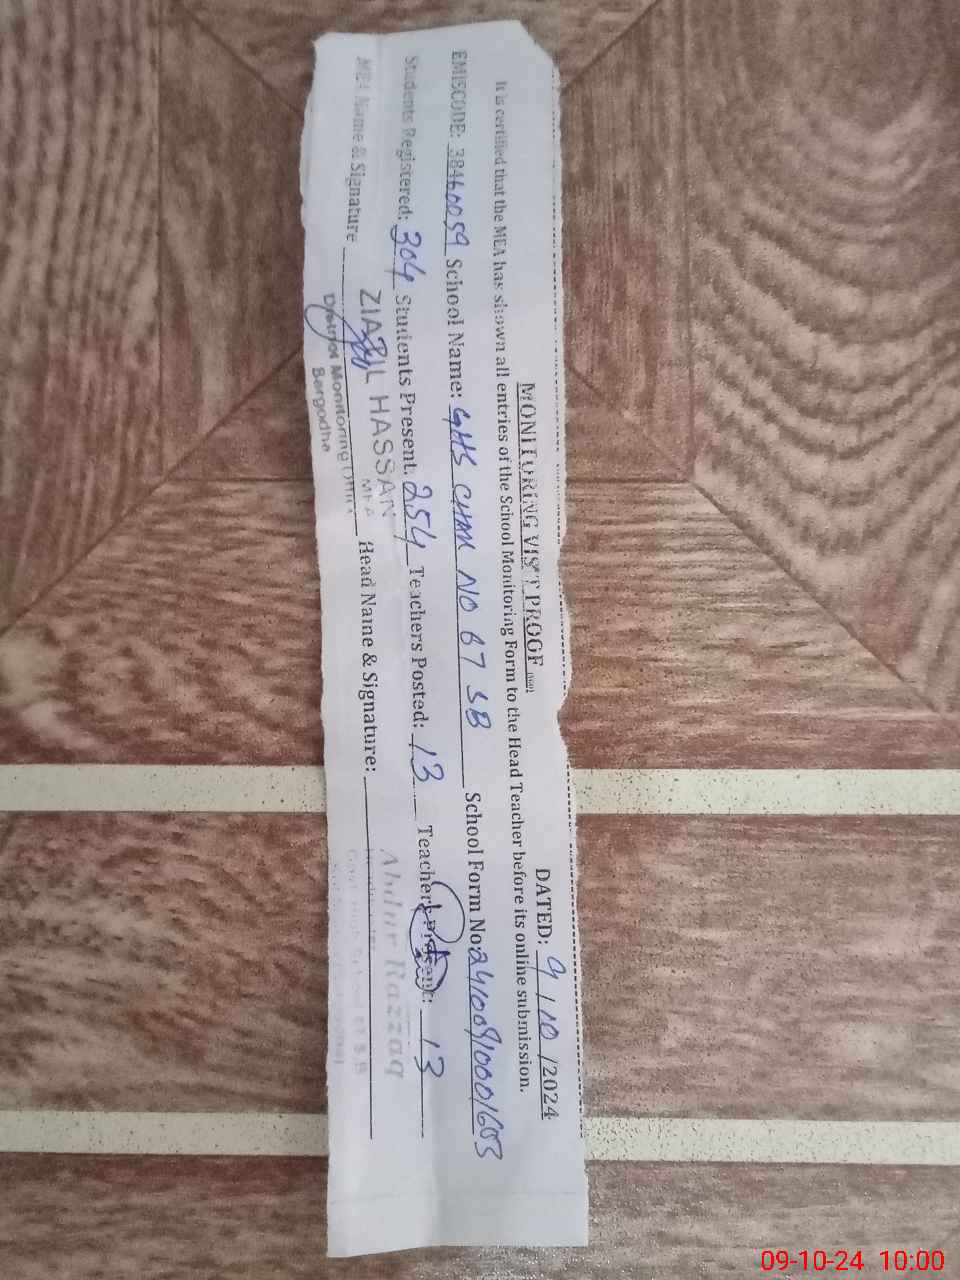 MONITORING VISIT PROOF DATED: 9/10/2024
It is certified that the MEA has shown all entries of the School Monitoring Form to the Head Teacher before its online submission.
EMISCODE: 38460059 School Name: GHS CHAK NO 67 SB School Form No 24100910001653
Students Registered: 304 Students Present: 254 Teachers Posted: 13 Teachers Present: 13
MEA Name & Signature Head Name & Signature:
ZIA UL HASSAN
MEA
District Monitoring Office
Sargodha
Abdur Razzaq
09-10-24 10:00